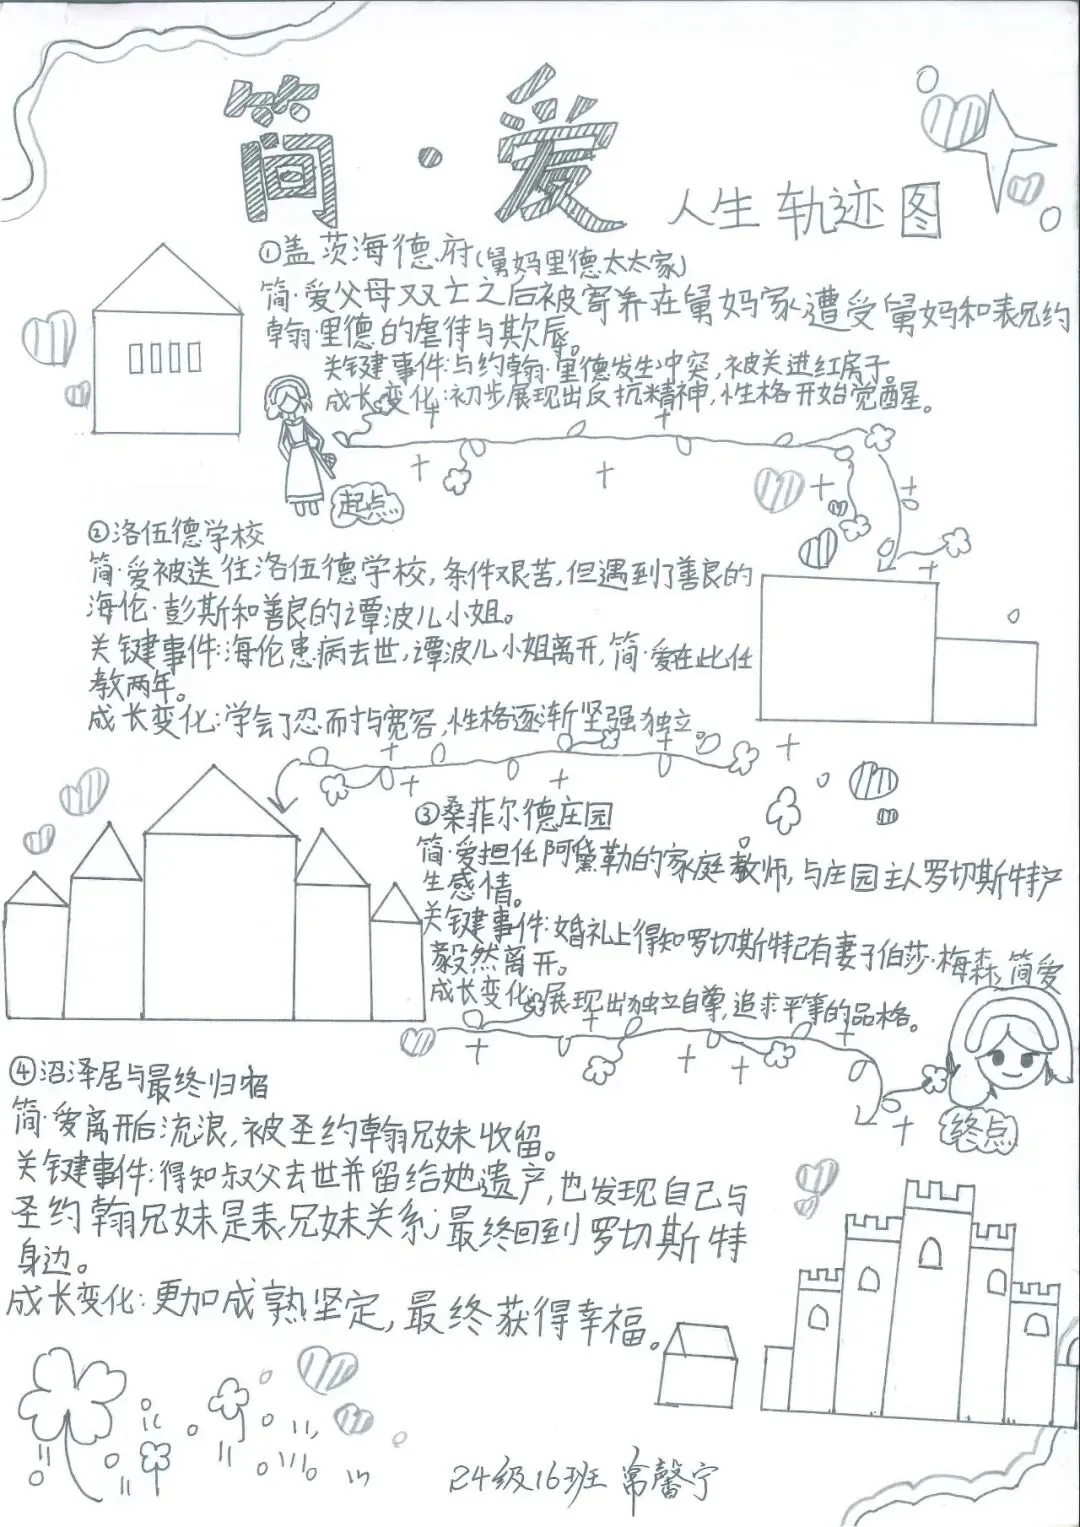 简·爱 人生轨迹图
①盖茨海德府(舅妈里德太太家)
简·爱父母双亡之后被寄养在舅妈家遭受舅妈和表兄约
翰·里德的虐待与欺辱。
关键事件:与约翰·里德发生冲突,被关进红房子。
成长变化:初步展现出反抗精神,性格开始觉醒。
起点
②洛伍德学校
简·爱被送往洛伍德学校,条件艰苦,但遇到了善良的
海伦·彭斯和善良的谭波儿小姐。
关键事件:海伦患病去世,谭波儿小姐离开,简·爱在此任
教两年。
成长变化:学会了忍耐与宽容,性格逐渐坚强独立。
③桑菲尔德庄园
简·爱担任阿黛勒的家庭教师,与庄园主人罗切斯特产
生感情。
关键事件:婚礼上得知罗切斯特已有妻子伯莎·梅森,简爱
毅然离开。
成长变化:展现出独立自尊,追求平等的品格。
④沼泽居与最终归宿
简·爱离开后流浪,被圣约翰兄妹收留。
关键事件:得知叔父去世并留给她遗产,也发现自己与
圣约翰兄妹是表兄妹关系;最终回到罗切斯特
身边。
成长变化:更加成熟坚定,最终获得幸福。
终点
24级16班 常馨宁